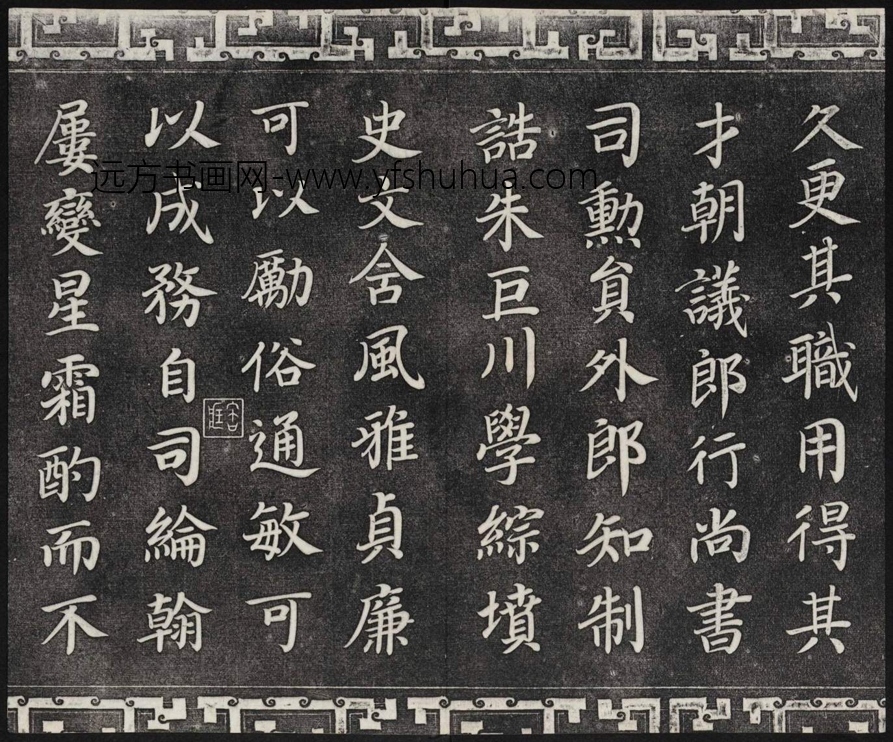 久更其職用得其
才朝議郎行尚書
司勳員外郎知制
誥朱巨川學綜墳
史文含風雅貞廉
可以勵俗通敏可
以成務自司綸翰
屢變星霜酌而不
远方书画网-www.yfshuhua.com